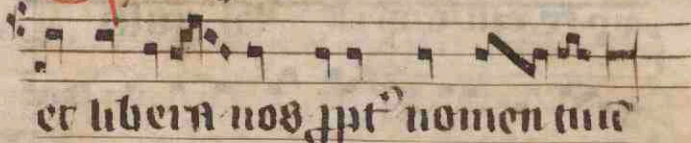 et libera nos ꝓpt᾽ nomen tuū